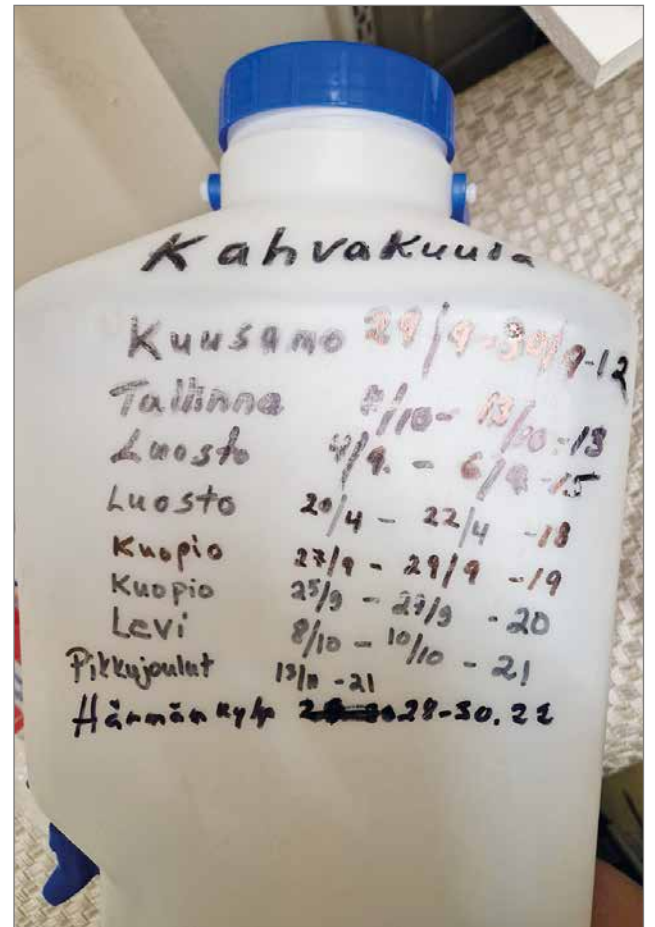 Kahvakuula
Kuusamo 29/9-30/9-12
Tallinna /10- 13/10-13
Luosto 4/9. - 6/9-15
Luosto 20/4 - 22/4 -18
Kuopio 27/9 - 29/9 -19
Kuopio 25/9 - 27/9 -20
Levi 8/10 - 10/10 - 21
Pikkujoulut 13/11 -21
Härmän kylp 28-30.22